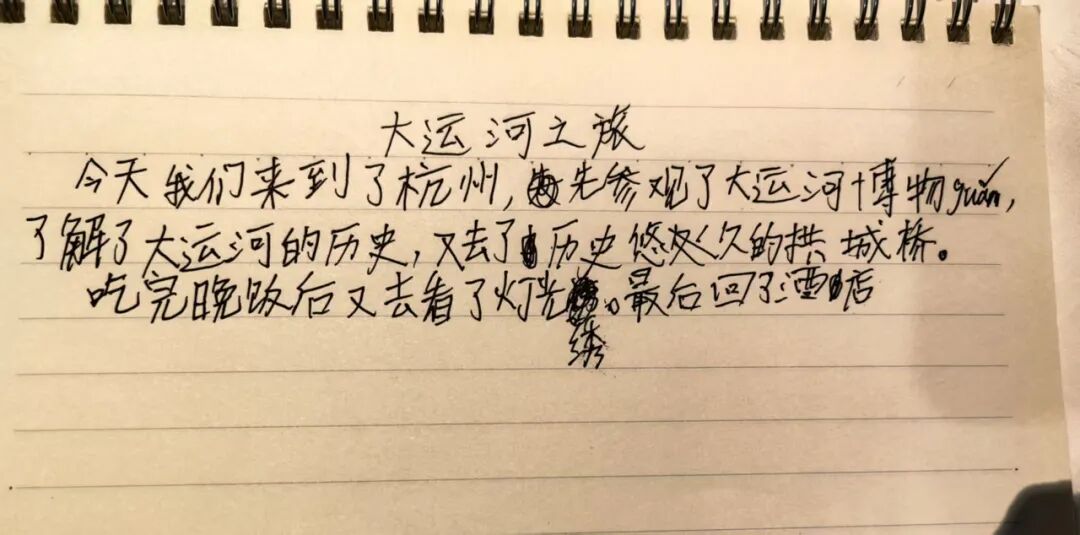 大运河之旅
今天我们来到了杭州，先参观了大运河博物guǎn，
了解了大运河的历史，又去了历史悠久的拱城桥。
吃完晚饭后又去看了灯光秀。最后回了酒店